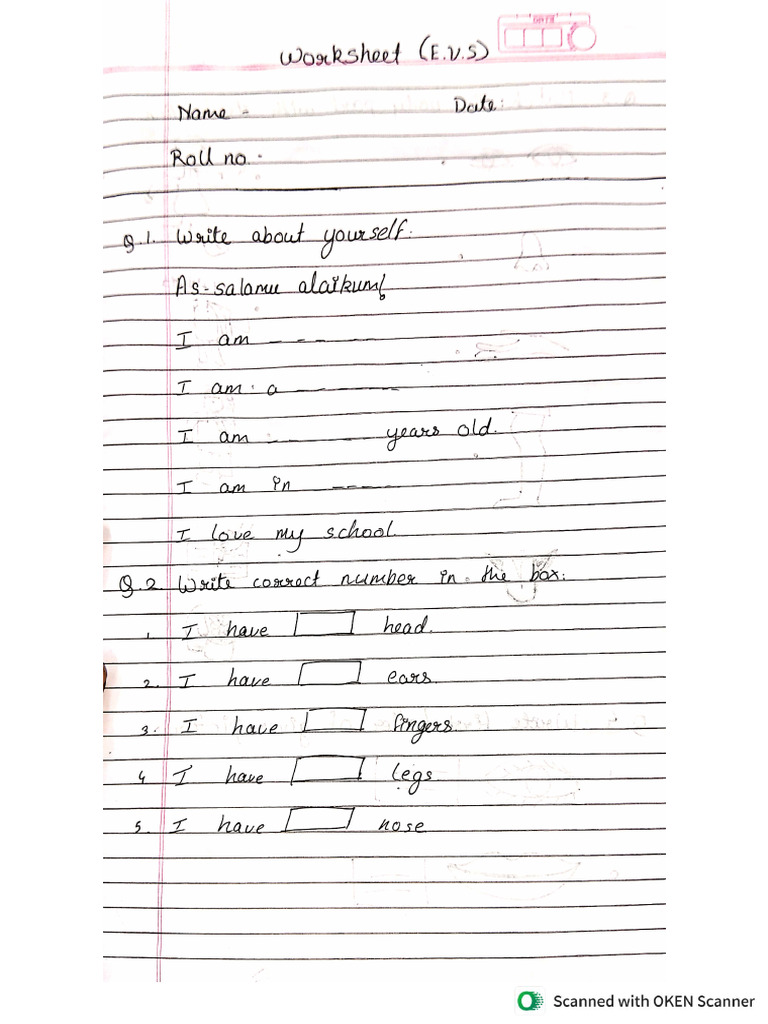 DATE
Worksheet (E.V.S)
Name - Date:
Roll no.-
Q.1. Write about yourself.
As-salamu alaikum!
I am ------
I am a ------
I am ------ years old.
I am in -----
I love my school.
Q.2. Write correct number in the box:
1. I have head.
2. I have ears.
3. I have fingers.
4 I have legs
5. I have nose
Scanned with OKEN Scanner